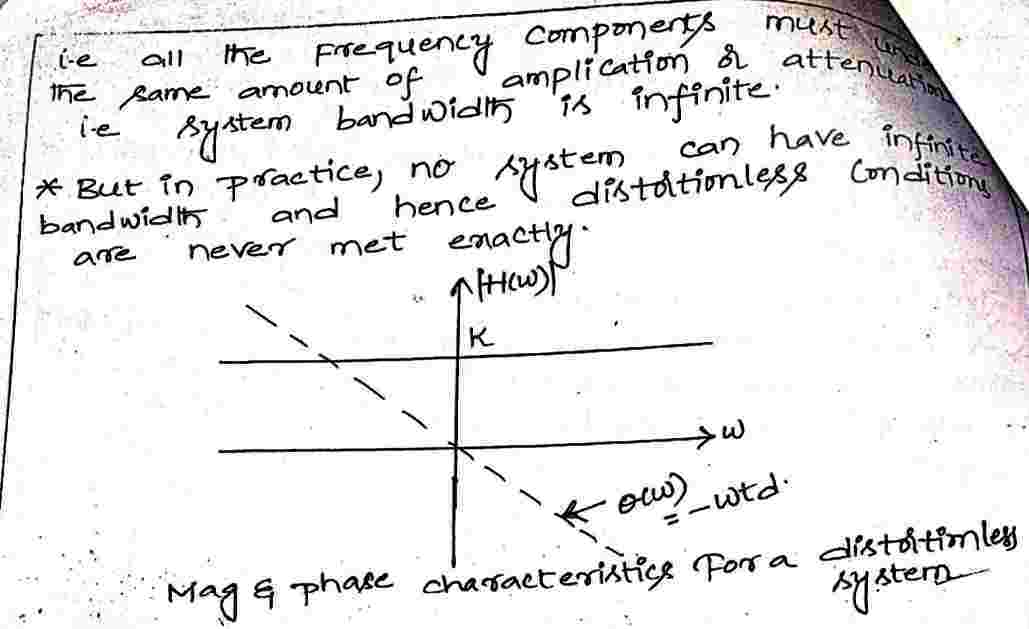 i.e all the Frequency components must
the same amount of amplication & attenuation
i.e system bandwidth is infinite.
* But in practice, no system can have infinite
bandwidth and hence distortionless Conditions
are never met exactly.
|H(ω)|
K
ω
θ(ω) = -ωtd.
Mag & phase characteristics For a distortionless
system